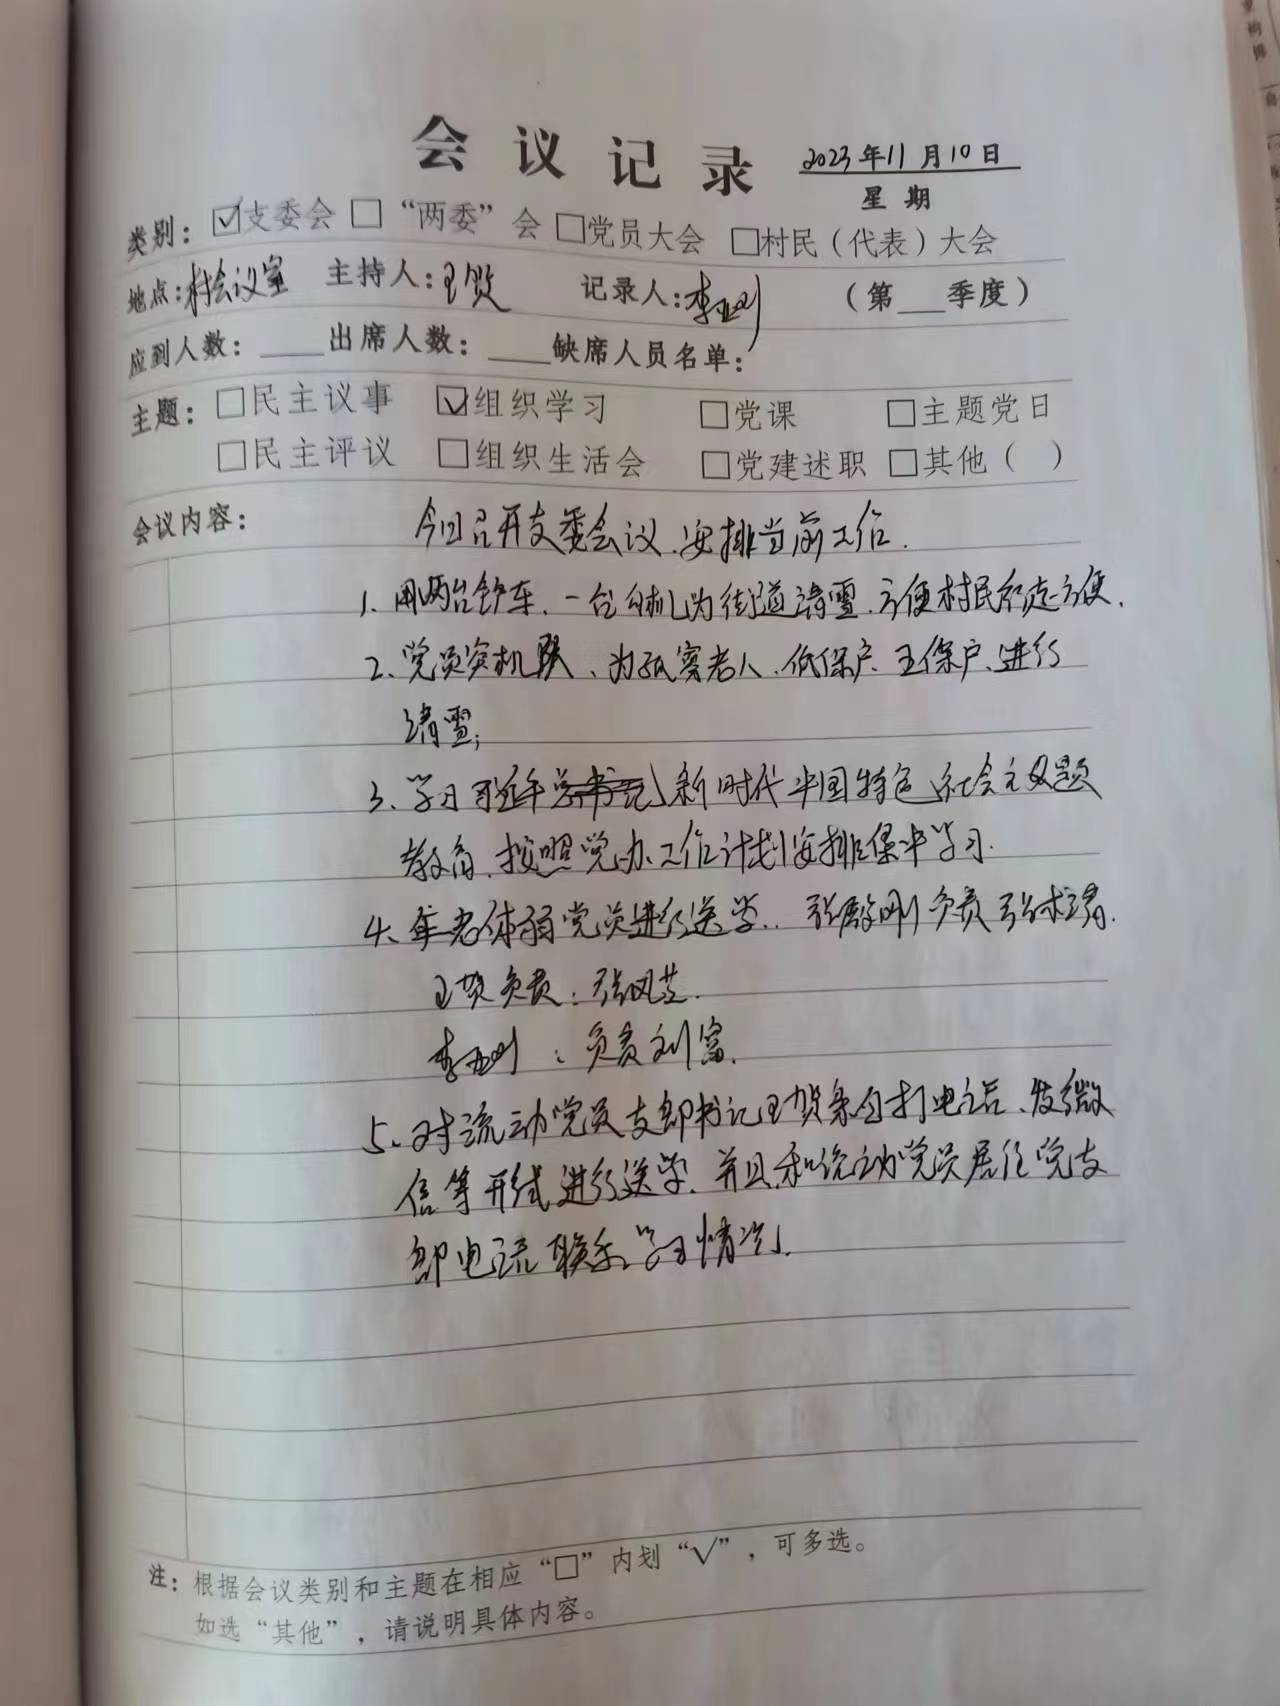 会议记录 2023年11月10日
星期
类别：☑支委会 □“两委”会 □党员大会 □村民（代表）大会
地点：村会议室 主持人：王贺 记录人：李亚刚 （第___季度）
应到人数：____出席人数：____缺席人员名单：
主题：□民主议事 ☑组织学习 □党课 □主题党日
□民主评议 □组织生活会 □党建述职 □其他（ ）
会议内容： 今日召开支委会议、安排当前工作.
1、用两台铲车、一台 为街道清雪、方便村民 方便.
2、党员 队、为孤寡老人、低保户、五保户、进行
清雪;
3、学习习近平 新时代中国特色社会主义 题
教育、按照党办工作计划安排集中学习.
4、年老体弱党员进行送学.. 张 刚负责张
王贺负责：张凤芝.
李亚刚：负责刘富.
5、对流动党员支部书记王贺亲自打电话、发微
信等形式进行送学、并且和流动党员居住党支
部电话联系学习情况.
注：根据会议类别和主题在相应“□”内划“√”，可多选。
如选“其他”，请说明具体内容。